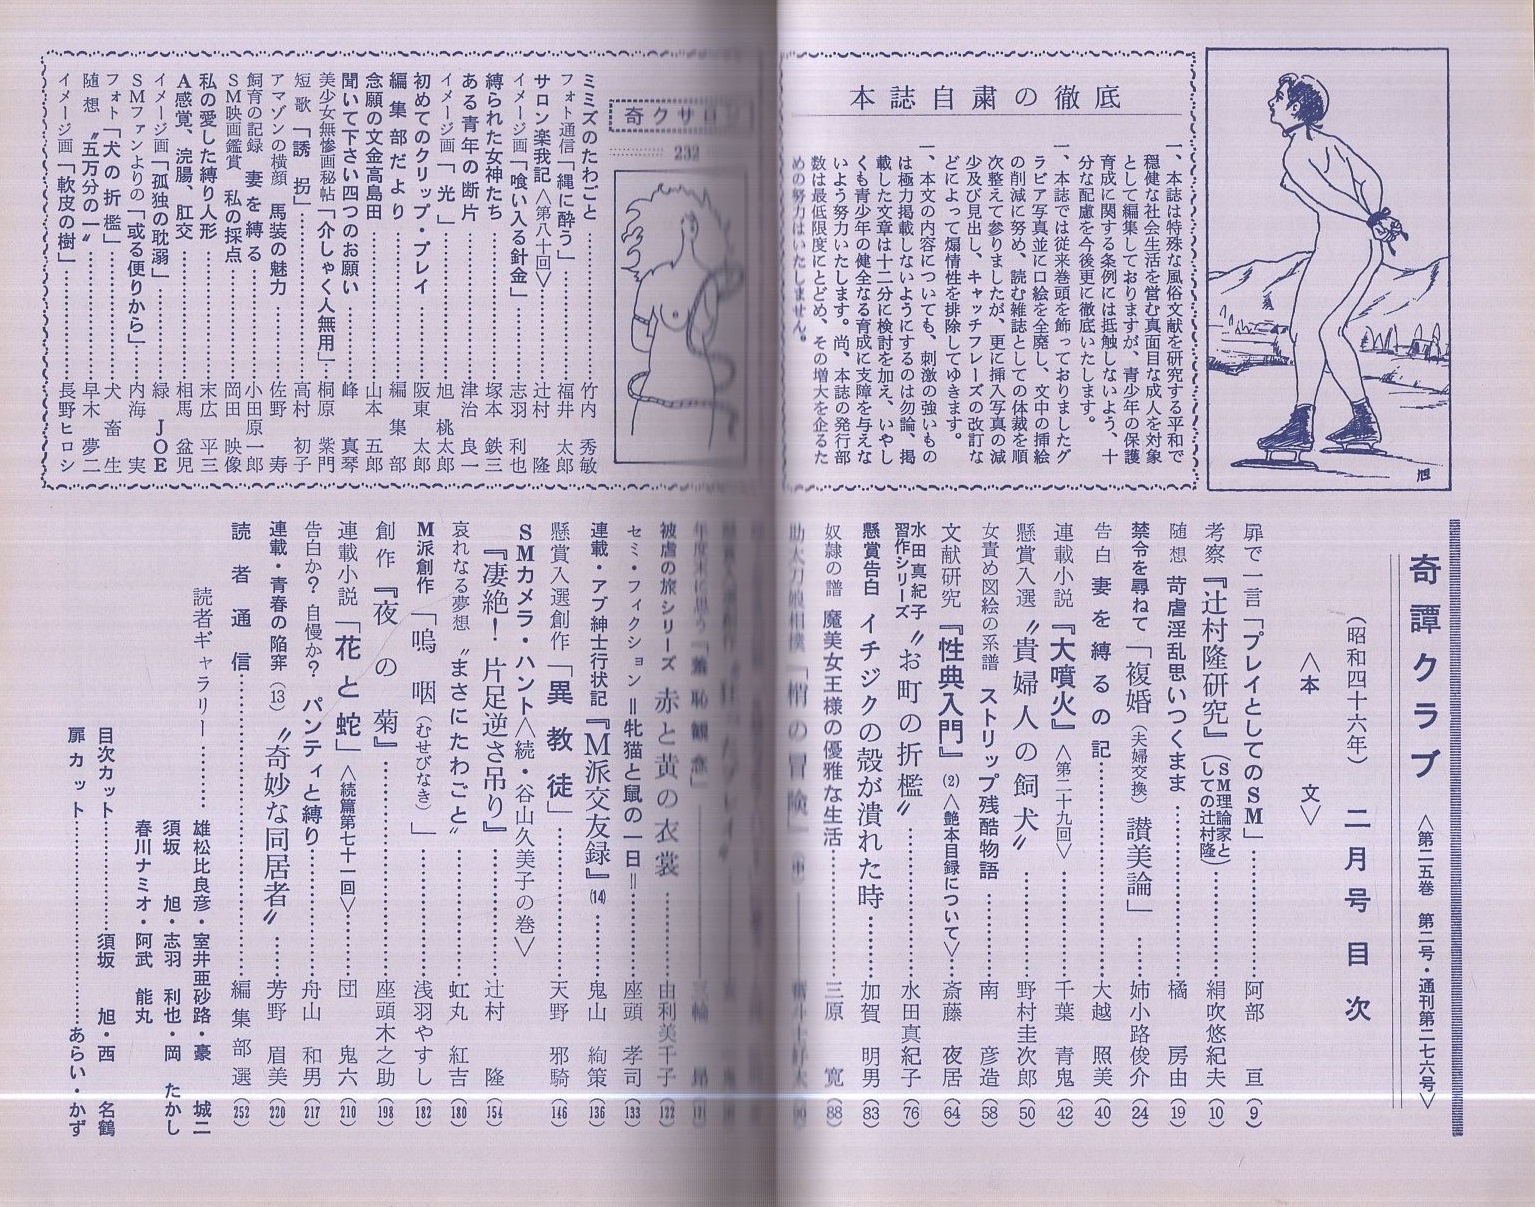 奇譚クラブ
〈第二五巻 第二号・通刊第二七六号〉
(昭和四十六年) 二月号目次
〈本 文〉
扉で一言「プレイとしてのSM」…………阿部 亘(9)
考察『辻村隆研究』(SM理論家としての辻村隆)…………絹吹悠紀夫(10)
随想 苛虐淫乱思いつくまま…………橘 房由(19)
禁令を尋ねて「複婚(夫婦交換)讃美論」……姉小路俊介(24)
告白 妻を縛るの記…………大越 照美(40)
連載小説『大噴火』〈第二十九回〉…………千葉 青鬼(42)
懸賞入選〝貴婦人の飼犬〟…………野村圭次郎(50)
女責め図絵の系譜 ストリップ残酷物語…………南 彦造(58)
文献研究『性典入門』(2)〈艶本目録について〉…斎藤 夜居(64)
水田真紀子習作シリーズ〝お町の折檻〟…………水田真紀子(76)
懸賞告白 イチジクの殻が潰れた時…………加賀 明男(83)
奴隷の譜 魔美女王様の優雅な生活…………三原 寛(88)
助太刀娘相撲「梢の冒険」
年度末に思う「羞恥観念」
被虐の旅シリーズ 赤と黄の衣裳…………由利美千子(122)
セミ・フィクション=牝猫と鼠の一日=…………座頭 孝司(133)
連載・アブ紳士行状記『M派交友録』(14)…………鬼山 絢策(136)
懸賞入選創作「異教徒」…………天野 邪騎(146)
SMカメラ・ハント〈続・谷山久美子の巻〉
『凄絶!片足逆さ吊り』…………辻村 隆(154)
哀れなる夢想〝まさにたわごと〟…………虹丸 紅吉(180)
M派創作「嗚咽(むせびなき)」…………浅羽やすし(182)
創作『夜の菊』…………座頭木之助(198)
連載小説「花と蛇」〈続篇第七十一回〉…………団 鬼六(210)
告白か?自慢か? パンティと縛り…………舟山 和男(217)
連載・青春の陥穽(13)〝奇妙な同居者〟……芳野 眉美(220)
読者通信…………編集部選(252)
読者ギャラリー………
雄松比良彦・室井亜砂路・豪 城二
須坂 旭・志羽 利也・岡 たかし
春川ナミオ・阿武 能丸
目次カット…………須坂 旭・西 名鶴
扉カット…………あらい・かず
旭
本誌自粛の徹底
一、本誌は特殊な風俗文献を研究する平和で
穏健な社会生活を営む真面目な成人を対象
として編集しておりますが、青少年の保護
育成に関する条例には抵触しないよう、十
分な配慮を今後更に徹底いたします。
一、本誌では従来巻頭を飾っておりましたグ
ラビア写真並に口絵を全廃し、文中の挿絵
の削減に努め、読む雑誌としての体裁を順
次整えて参りましたが、更に挿入写真の減
少及び見出し、キャッチフレーズの改訂な
どによって煽情性を排除してゆきます。
一、本文の内容についても、刺激の強いもの
は極力掲載しないようにするのは勿論、掲
載した文章は十二分に検討を加え、いやし
くも青少年の健全なる育成に支障を与えな
いよう努力いたします。尚、本誌の発行部
数は最低限度にとどめ、その増大を企るた
めの努力はいたしません。
奇クサロン
232
ミミズのたわごと…………竹内 秀敏
フォト通信「縄に酔う」…………福井 太郎
サロン楽我記〈第八十回〉…………辻村 隆
イメージ画「喰い入る針金」…………志羽 利也
縛られた女神たち…………塚本 鉄三
ある青年の断片…………津治 良一
イメージ画「光」…………旭 桃太郎
初めてのクリップ・プレイ…………阪東 太郎
編集部だより…………編集部
念願の文金高島田…………山本 五郎
聞いて下さい四つのお願い…………峰 真琴
美少女無惨画秘帖「介しゃく人無用」…桐原 紫門
短歌「誘拐」…………高村 初子
アマゾンの横顔 馬装の魅力…………佐野 寿
飼育の記録 妻を縛る…………小田原一郎
SM映画鑑賞 私の採点…………岡田 映像
私の愛した縛り人形…………末広 平三
A感覚、浣腸、肛交…………相馬 盆児
イメージ画「孤独の耽溺」…………緑 JOE
SMファンよりの「或る便りから」………内海 実
フォト「犬の折檻」…………犬 畜生
随想〝五万分の一〟…………早木 夢二
イメージ画「軟皮の樹」…………長野ヒロシ